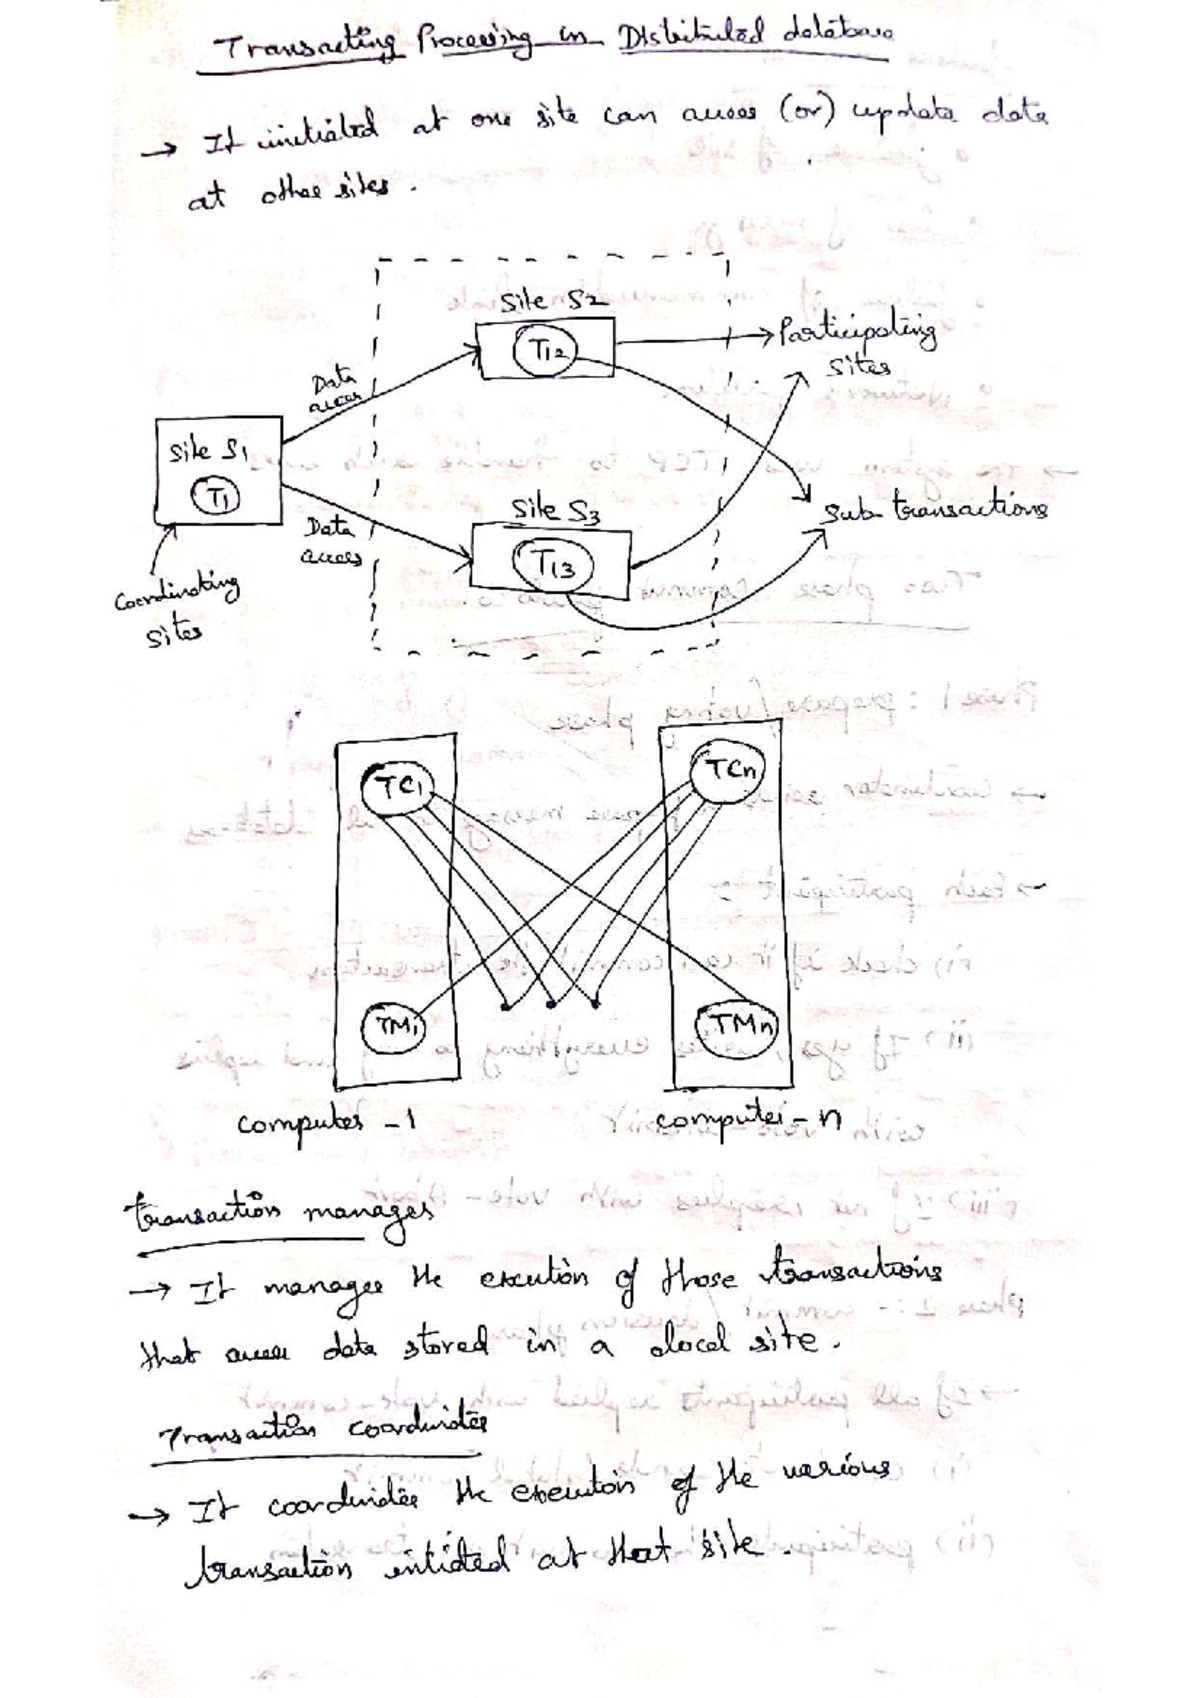 Transacting Processing in Distributed database
→ It initiated at one site can access (or) update data
at other sites.
Site S2
T12
Participating
sites
Data
access
Site S1
T1
Data
access
Site S3
T13
Sub transactions
Coordinating
sites
TC1
TCn
TMi
TMn
computer - 1
computer - n
transaction manages
→ It manages the execution of those transactions
that access data stored in a local site.
Transaction coordinates
→ It coordinates the execution of the various
transaction intiated at that site.